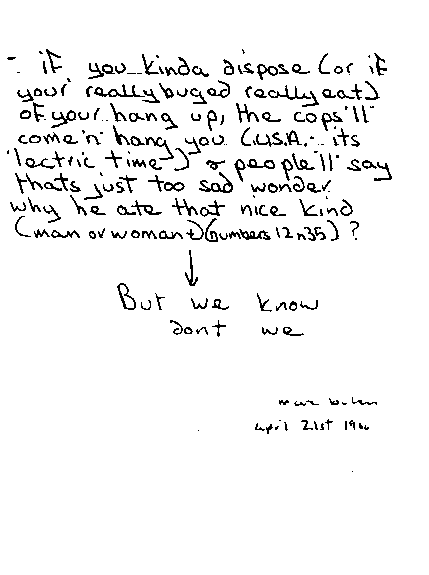 - if you kinda dispose (or if
your really buged really eat)
of your hang up, the cops'll
come 'n' hang you (U.S.A. - its
'lectric time') & people'll say
thats just too sad wonder
why he ate that nice kind
(man or woman +) (numbers 12 n 35) ?
But we know
dont we
april 21st